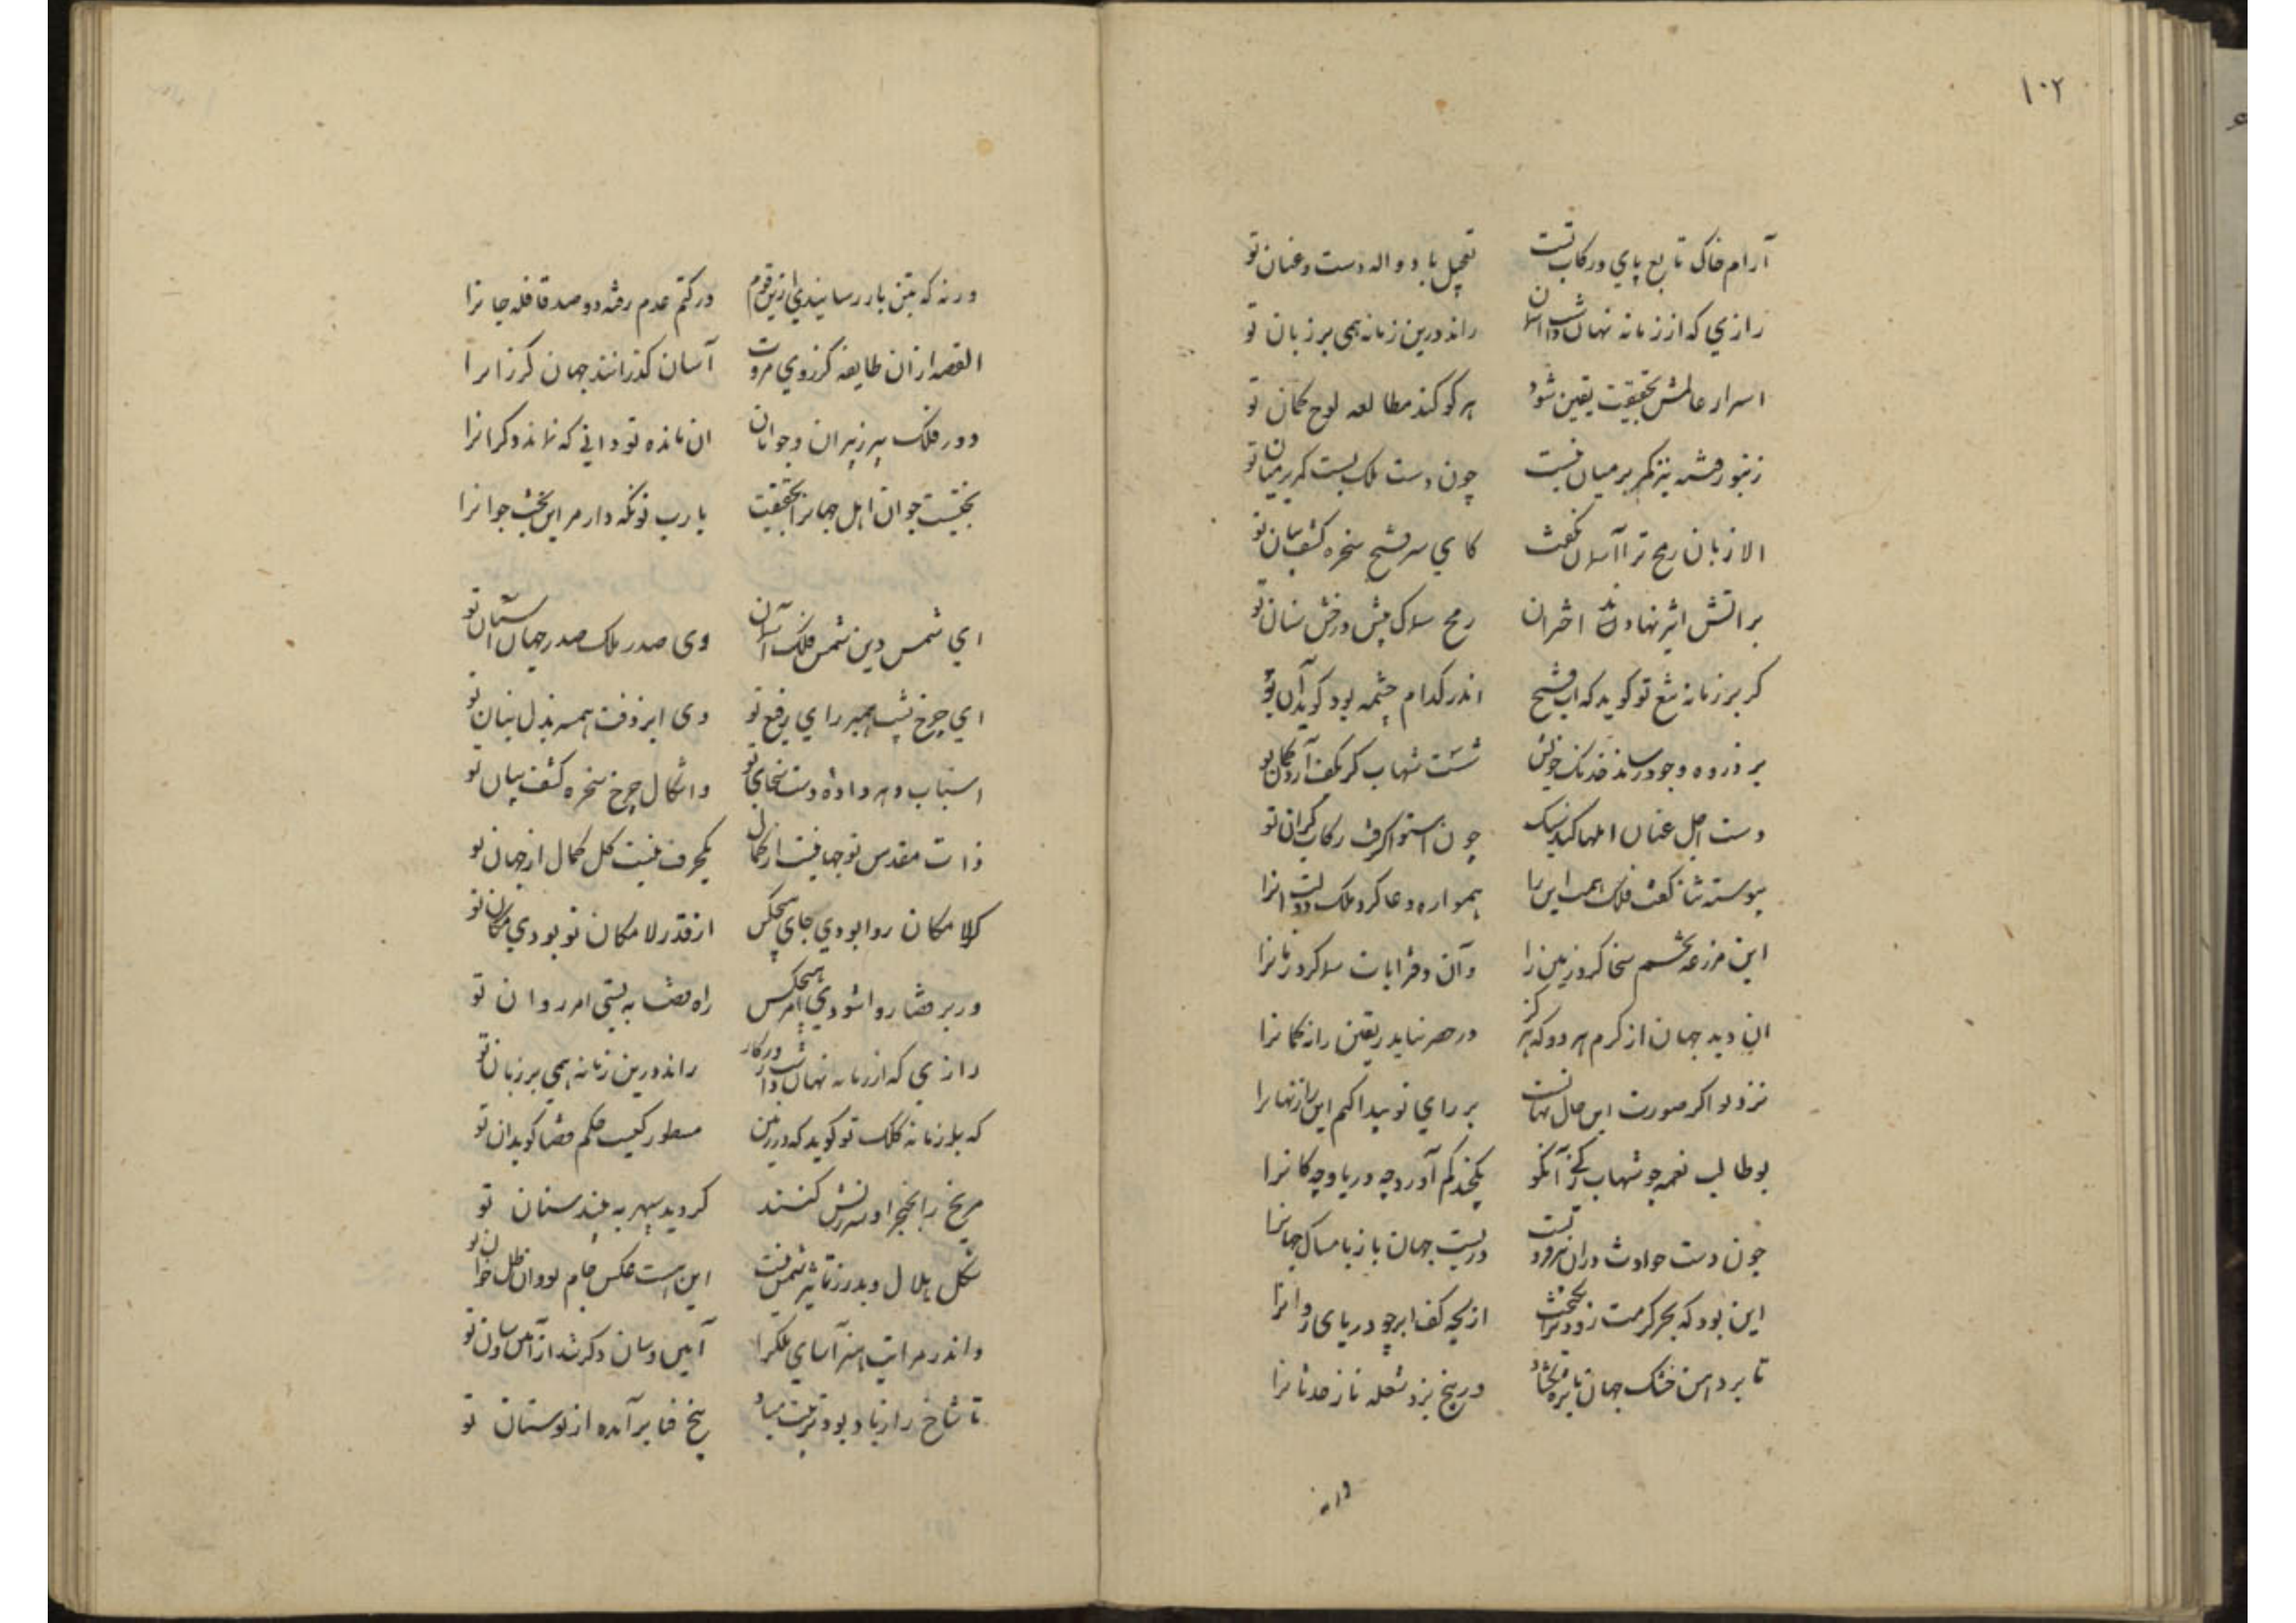 ۱۰۲
آرام خاک تابع پای و رکاب تست تعجیل باد واله دست و عنان تو
رازی که از زمانه نهان داشت آسمان راند درین زمانه همی بر زبان تو
اسرار عالمش بحقیقت یقین شود هر کو کند مطالعه لوح کمان تو
چون دست ملک بست کمر بر میان تو
الا زبان رمح ترا آسمان نکفت کای سر فتح سخره کشف بیان تو
بر آتش اثیر نهادند اختران رمح سماک پیش درخش سنان تو
کر بر زمانه تیغ تو کوید که آب فتح اندر کدام چشمه بود کوید آن تو
بر ذروه وجود رساند خدنک خویش شست شهاب کر بکف آرد کمان تو
دست اجل عنان املها کند سبک چون استوار کرد رکاب کران تو
پیوسته ثنا کفت فلک همت این را همواره دعا کرد ملک دولت آنرا
این مزرعه تخم سخا کرد زمین را وآن دفتر آیات سمر کرد زمانرا
آن دید جهان از کرم هر دو که هرکز در حصر نیاید نه یقین را نه کمانرا
نزد تو اکر صورت این حال نهانست بر رای تو پیدا کنم این راز نهانرا
بوطالب نعمه چو شهاب زکی آنکو یکچند کم آورد چه دریا و چه کانرا
چون دست حوادث در آن هر دو فروبست در بست جهان باز بامساک جهانرا
این بود که بحر کرمت زود برانکیخت از لجه کف ابر چو دریای روانرا
تا بر دامن خشک جهان در بیخ نزد شعله ناز حدثانرا
ورنه که بتن باز رسانیدی ازین قوم در کتم عدم رفته دو صد قافله جانرا
القصه از آن طایفه کز روی مروت آسان کذرانند جهان کذرانرا
دور فلک پیر ز پیران و جوانان آن مانده تو دانی که نماند دکرانرا
بختیست جوان اهل جهانرا بحقیقت یا رب تو نکه دار مر این بخت جوانرا
ای شمس دین شمس فلک آسمان تو وی صدر ملک صدر جهان آستان تو
ای چرخ پست همبر رای رفیع تو وی ابر زفت همسر بذل بنان تو
اسباب دهر داده دست سخای تو واشکال چرخ سخره کشف بیان تو
ذات مقدس تو جهانیست از کمال یکحرف نیست کل کمال از جهان تو
کر لامکان روا بودی جای هیچکس از قدر لامکان تو بودی مکان تو
ور بر قضا روا شودی امر هیچکس راه قضا ببستی امر روان تو
رازی که از زمانه نهان داشت کردکار راند درین زمانه همی بر زبان تو
که بر زمانه کلک تو کوید که در زمین مسطور کیست حکم قضا کوید آن تو
مریخ را بخنجر او سرزنش کنند کردید سپهر به بیند سنان تو
شکل هلال و بدر ز تاثیر شمس نیست این هست عکس جام تو وان ظل خوان تو
واندر مراتب هنر آسای ملکرا
تا شاخ را ز باد بود تربیت مباد بیخ فنا برآمده از بوستان تو